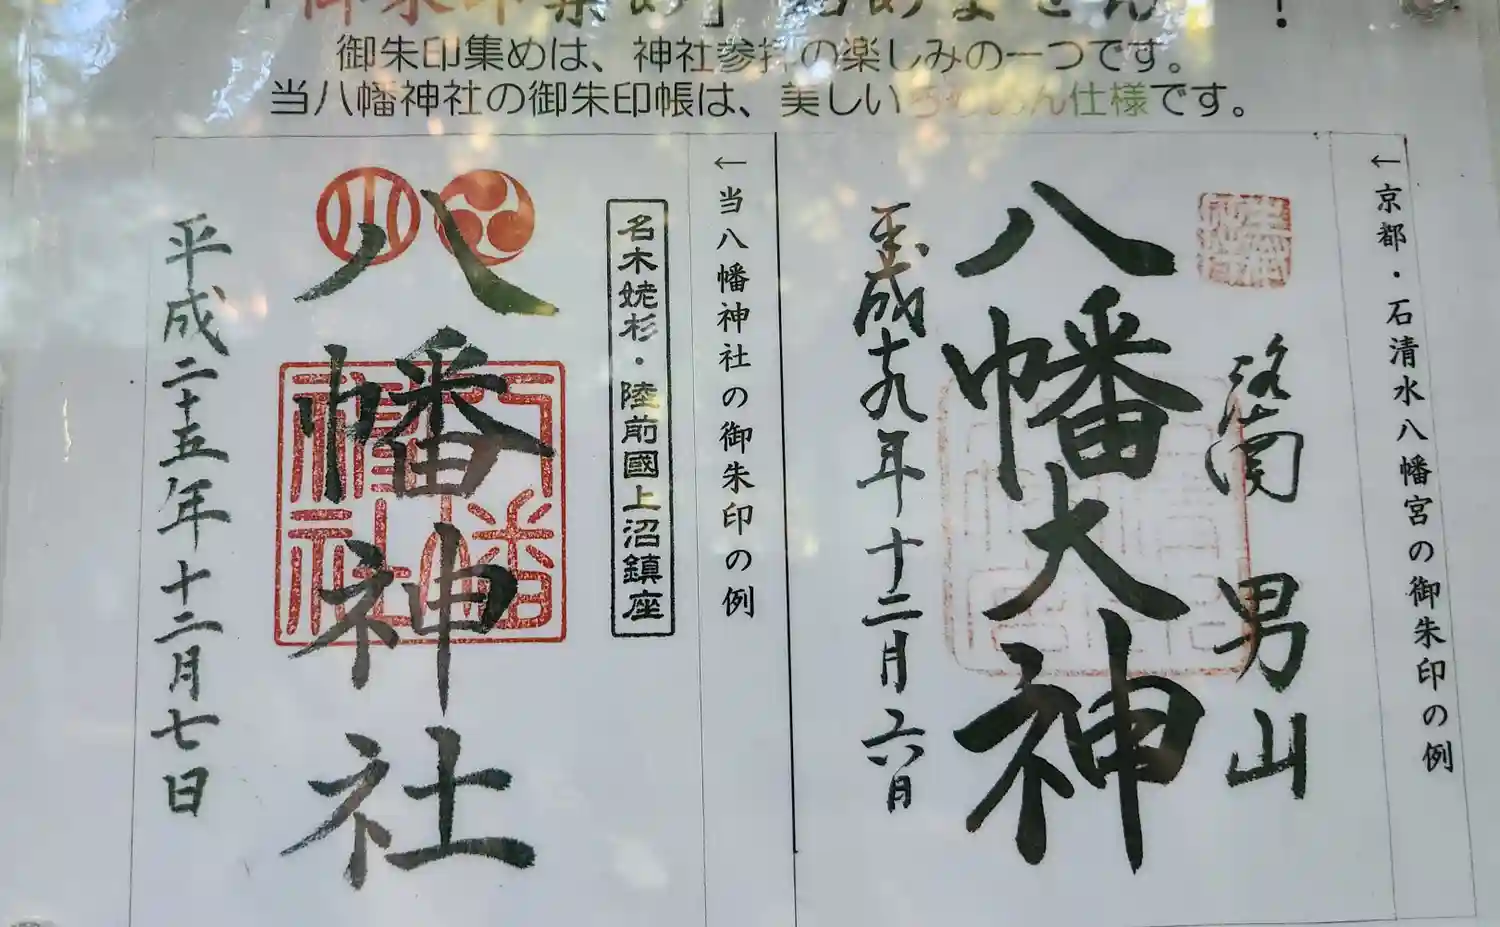 「御朱印集め」始めませんか！
御朱印集めは、神社参拝の楽しみの一つです。
当八幡神社の御朱印帳は、美しいちりめん仕様です。
←京都・石清水八幡宮の御朱印の例
洛南 男山
八幡大神
平成十九年十二月六日
←当八幡神社の御朱印の例
名木姥杉・陸前國上沼鎮座
八幡神社
八幡神社
平成二十五年十二月七日